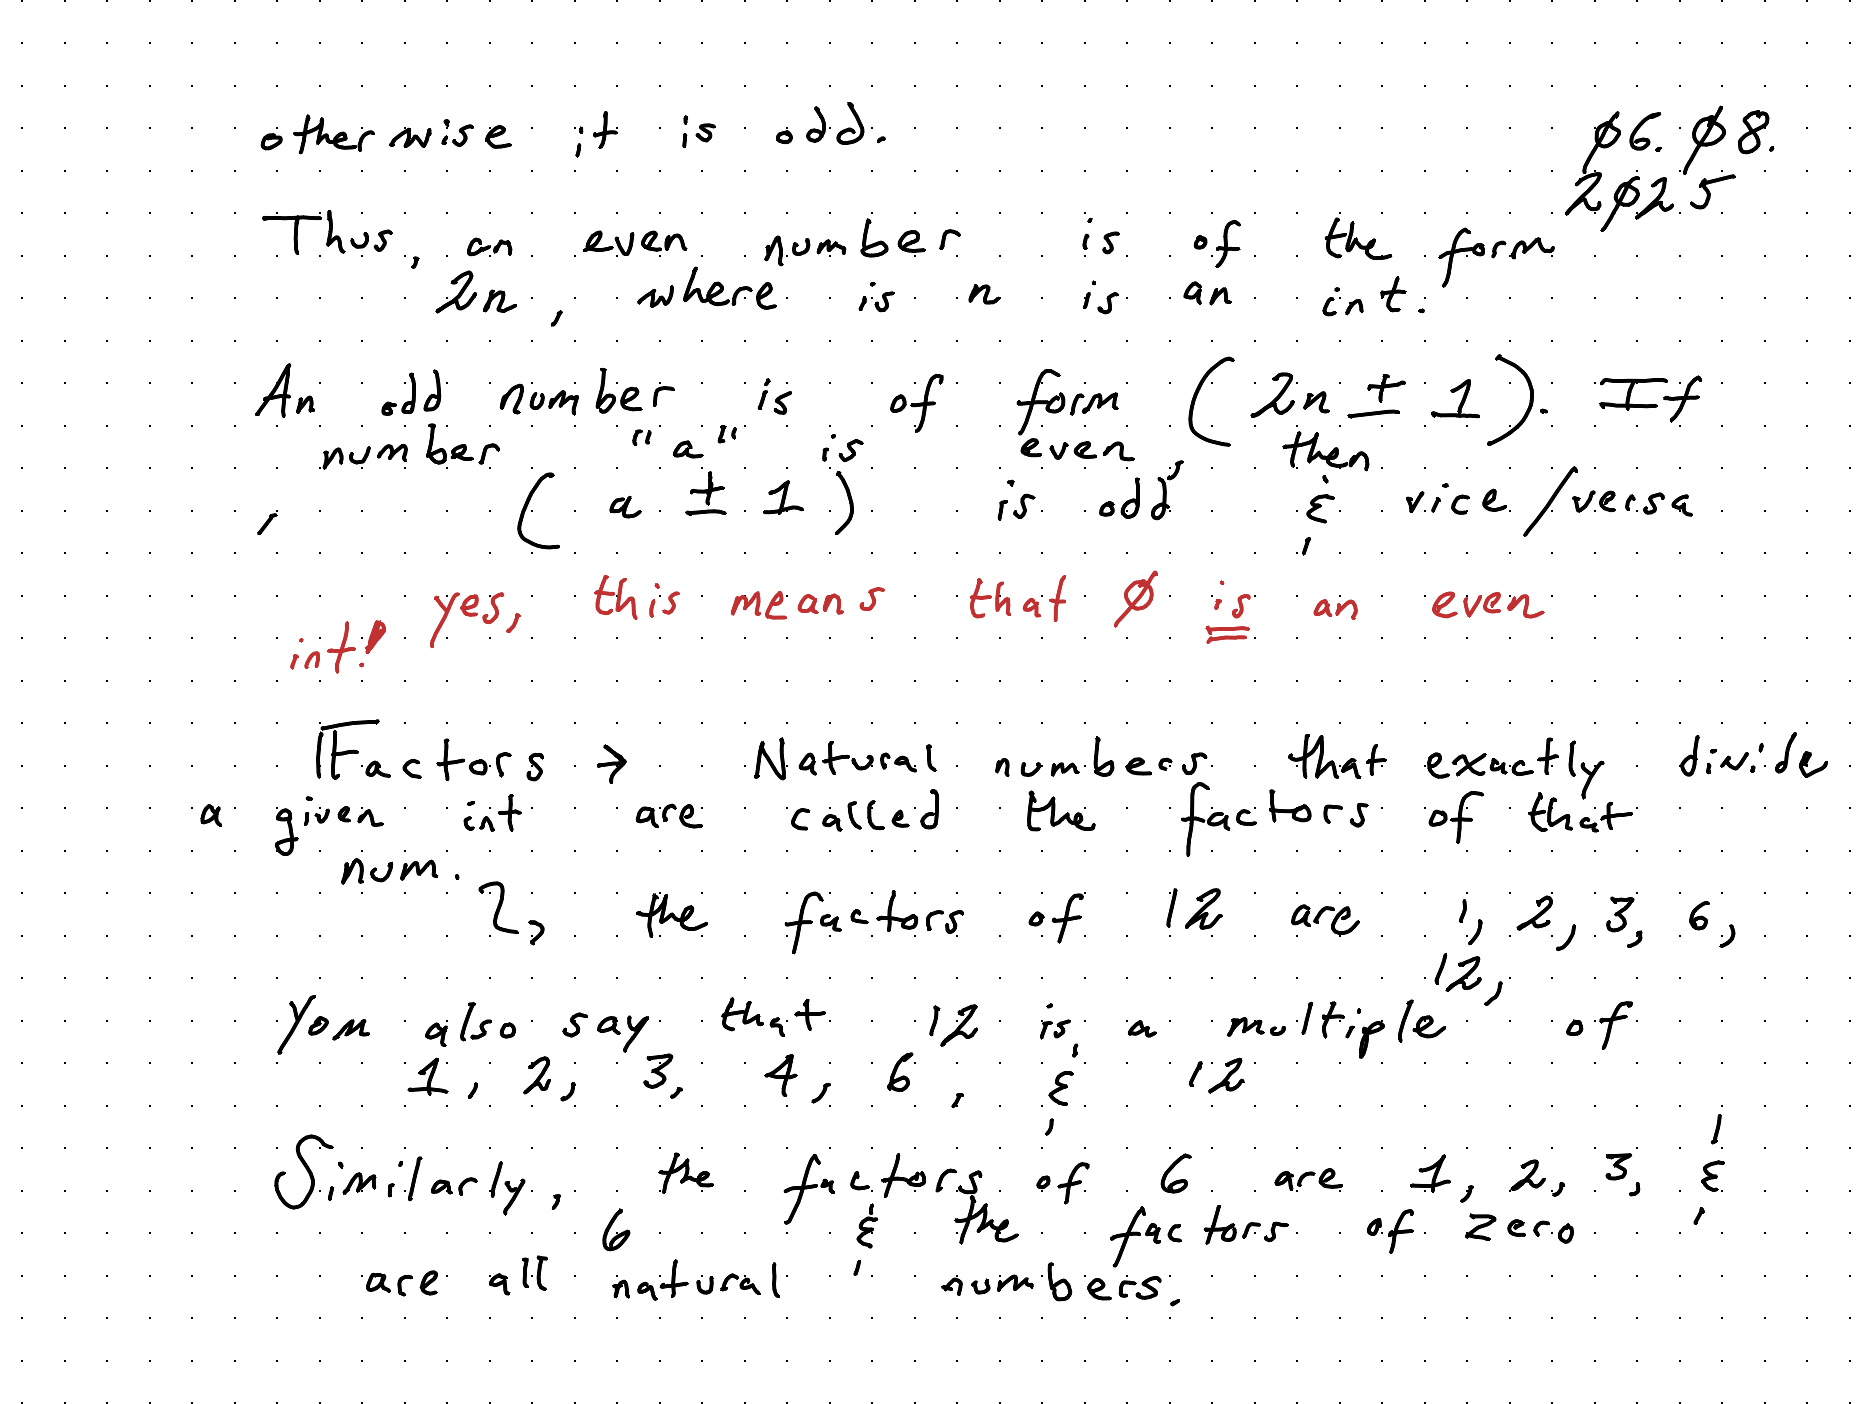 otherwise it is odd.
Ø6. Ø8.
2Ø25
Thus, an even number is of the form
2n, where is n is an int.
An odd number is of form (2n ± 1). If
number "a" is even, then
, (a ± 1) is odd, & vice/versa
yes, this means that Ø is an even
int!
Factors → Natural numbers that exactly divide
a given int are called the factors of that
num.
the factors of 12 are 1, 2, 3, 6,
12,
You also say that 12 is a multiple of
1, 2, 3, 4, 6, & 12
Similarly, the factors of 6 are 1, 2, 3, &
6 & the factors of zero
are all natural numbers.